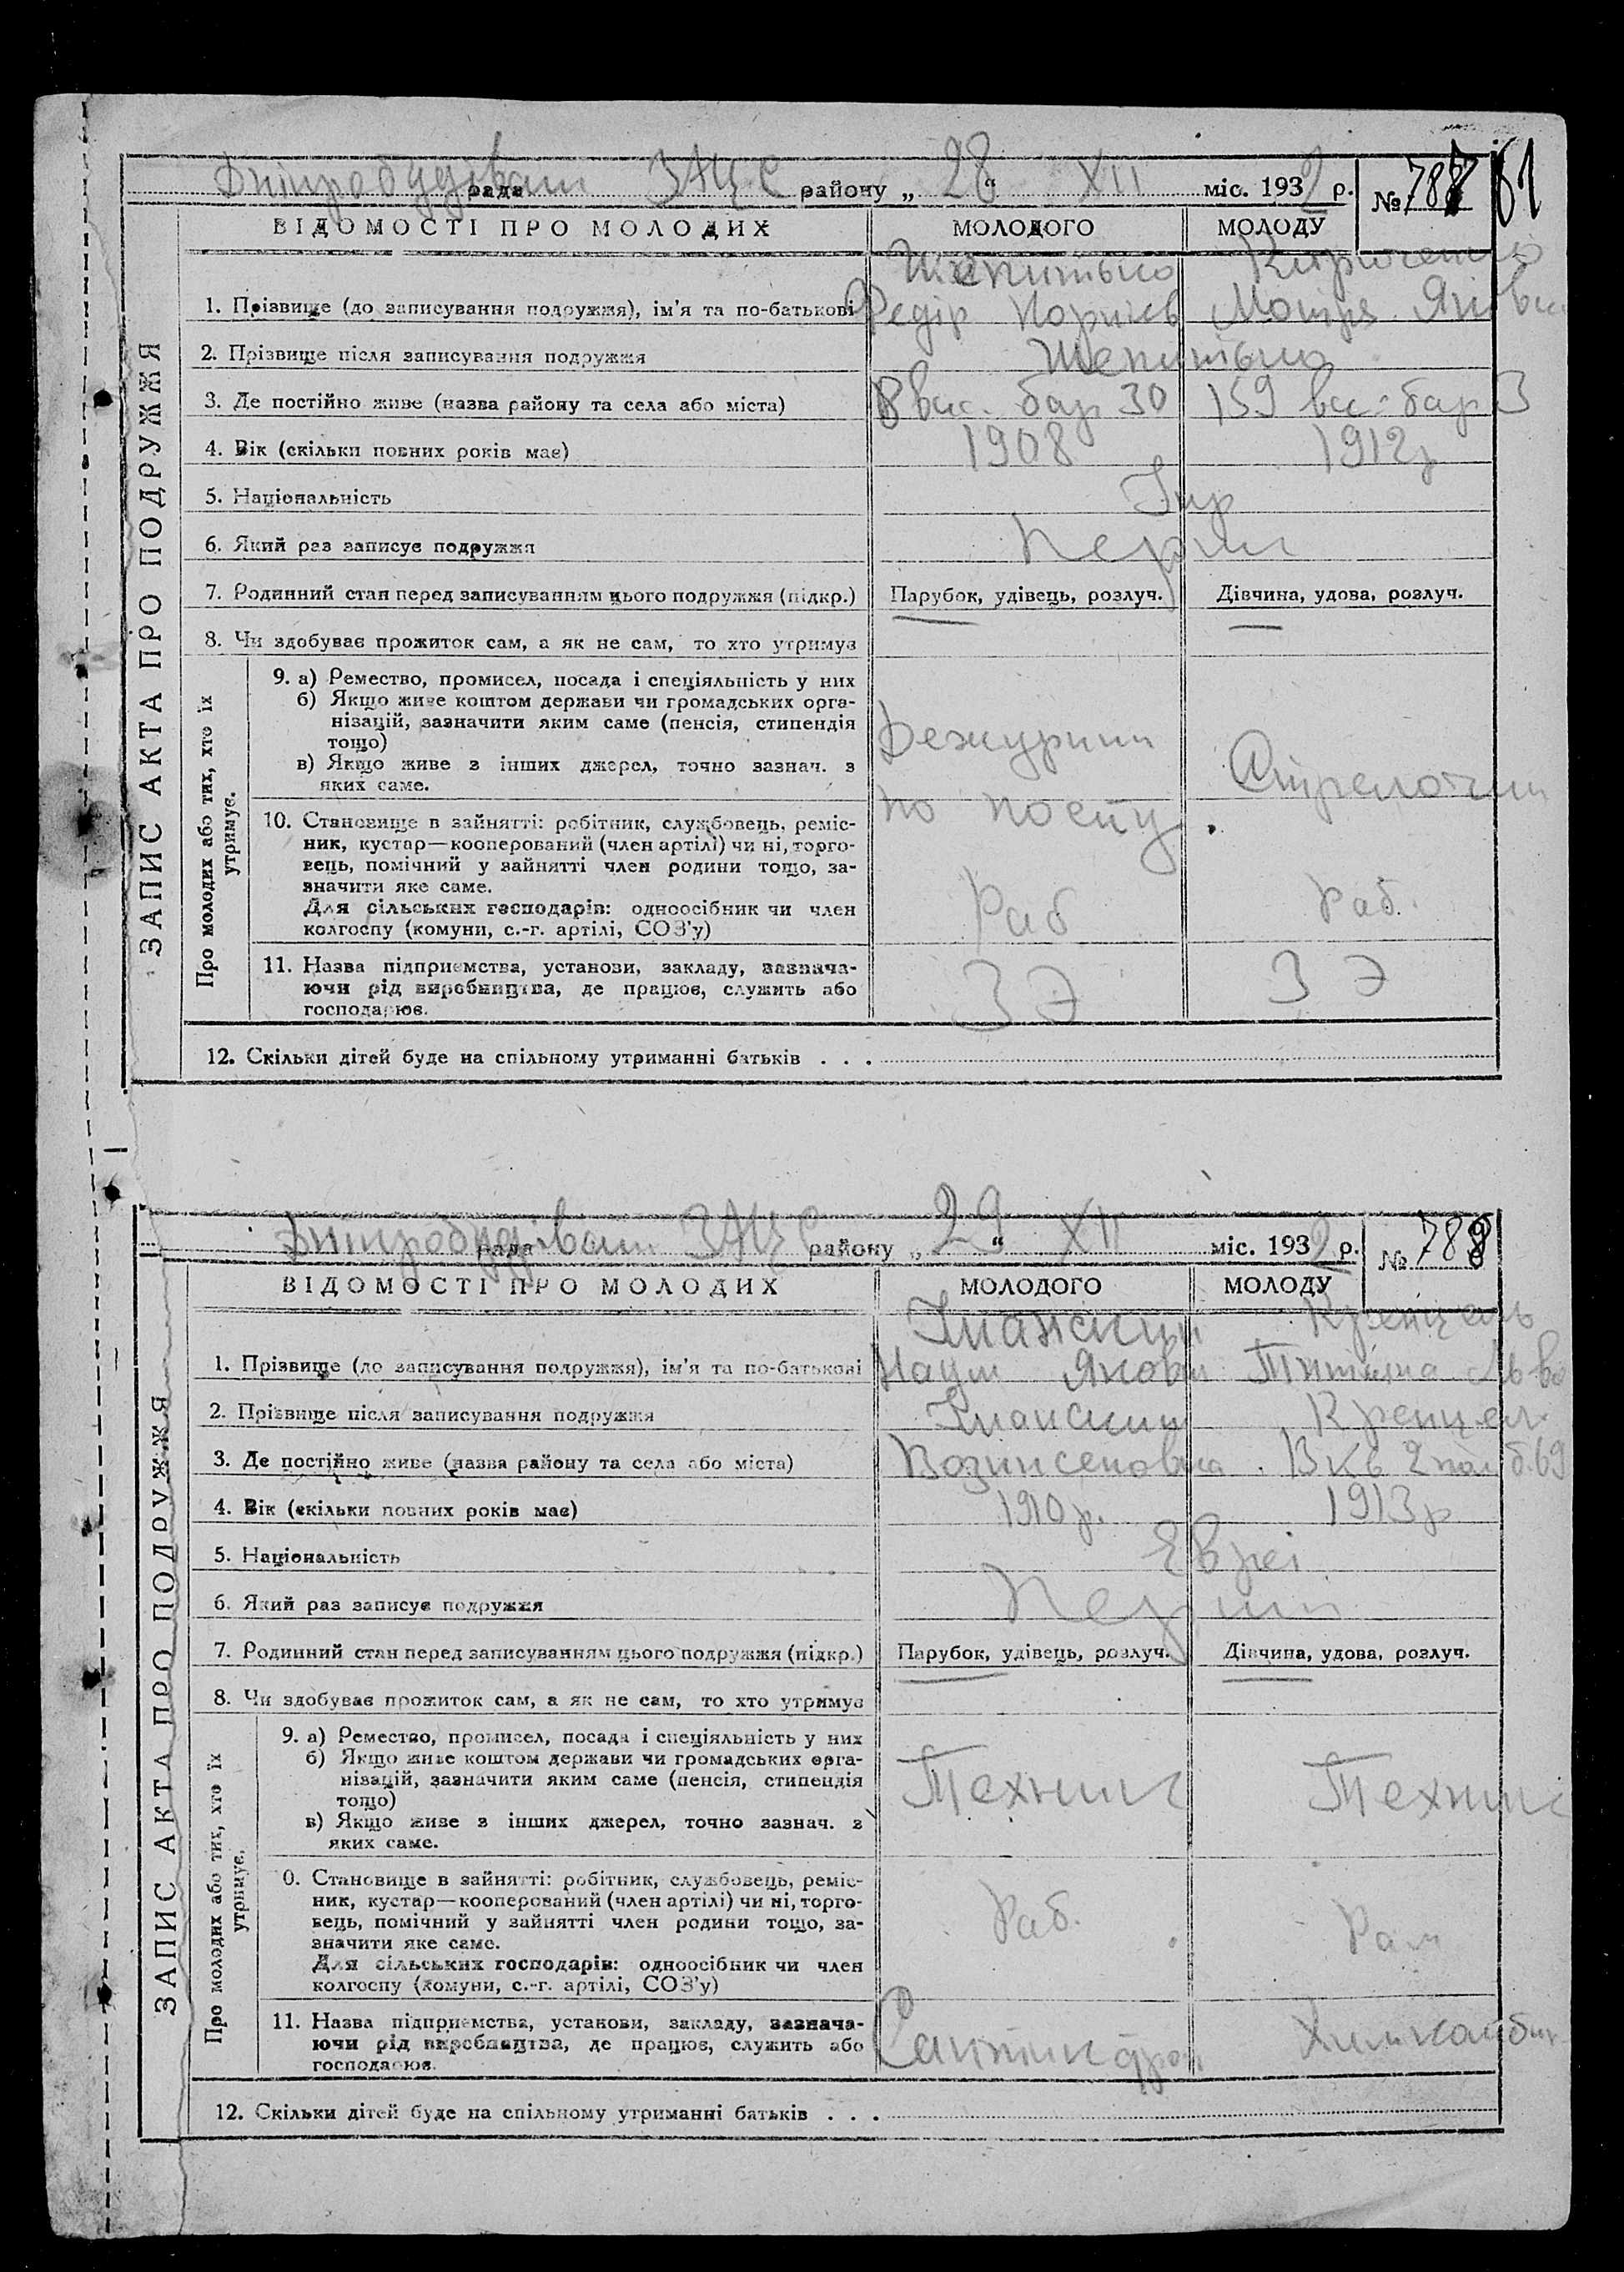 Дніпробудівська рада ЗАЦС району „ 28 “ XII міс. 1932 р. № 787 61
ВІДОМОСТІ ПРО МОЛОДИХ МОЛОДОГО МОЛОДУ
Шепитько
1. Прізвище (до записування подружжя), ім'я та по-батькові Федір Корніев Мотря Яківна
2. Прізвище після записування подружжя Шепитько
3. Де постійно живе (назва району та села або міста) бар 30 159 бар 3
4. Вік (скільки повних років має) 1908 1912р
5. Національність Укр
6. Який раз записує подружжя Перши
7. Родинний стан перед записуванням цього подружжя (підкр.) Парубок, удівець, розлуч. Дівчина, удова, розлуч.
8. Чи здобуває прожиток сам, а як не сам, то хто утримує
9. а) Ремество, промисел, посада і спеціяльність у них
б) Якщо живе коштом держави чи громадських орга-
нізацій, зазначити яким саме (пенсія, стипендія
тощо) Дежурний
в) Якщо живе з інших джерел, точно зазнач. з
яких саме. по посту Стрелочни
10. Становище в зайнятті: робітник, службовець, реміс-
ник, кустар—кооперований (член артілі) чи ні, торго-
вець, помічний у зайнятті член родини тощо, за-
значити яке саме. Раб Раб.
Для сільських господарів: одноосібник чи член
колгоспу (комуни, с.-г. артілі, СОЗ'у)
11. Назва підприємства, установи, закладу, зазнача-
ючи рід виробництва, де працює, служить або З Э З Э
господарює.
12. Скільки дітей буде на спільному утриманні батьків . . .
ЗАПИС АКТА ПРО ПОДРУЖЖЯ
Про молодих або тих, хто їх
утримує.
Дніпробудівська рада ЗАЦС району „ 29 “ XII міс. 1932 р. № 788
ВІДОМОСТІ ПРО МОЛОДИХ МОЛОДОГО МОЛОДУ
Кренцель
1. Прізвище (до записування подружжя), ім'я та по-батькові Наум Якови Тит'яна Льв
2. Прізвище після записування подружжя Кренцел
3. Де постійно живе (назва району та села або міста) Вознисеновка. Вкв 2 пол б.69
4. Вік (скільки повних років має) 1910р. 1913р
5. Національність Евреі
6. Який раз записує подружжя Перший
7. Родинний стан перед записуванням цього подружжя (підкр.) Парубок, удівець, розлуч. Дівчина, удова, розлуч.
8. Чи здобуває прожиток сам, а як не сам, то хто утримує
9. а) Ремество, промисел, посада і спеціяльність у них
б) Якщо живе коштом держави чи громадських орга-
нізацій, зазначити яким саме (пенсія, стипендія Техник Техник
тощо)
в) Якщо живе з інших джерел, точно зазнач. з
яких саме.
0. Становище в зайнятті: робітник, службовець, реміс-
ник, кустар—кооперований (член артілі) чи ні, торго-
вець, помічний у зайнятті член родини тощо, за- Раб.
значити яке саме.
Для сільських господарів: одноосібник чи член
колгоспу (комуни, с.-г. артілі, СОЗ'у)
11. Назва підприємства, установи, закладу, зазнача-
ючи рід виробництва, де працює, служить або Химкомбин
господарює.
12. Скільки дітей буде на спільному утриманні батьків . . .
ЗАПИС АКТА ПРО ПОДРУЖЖЯ
Про молодих або тих, хто їх
утримує.